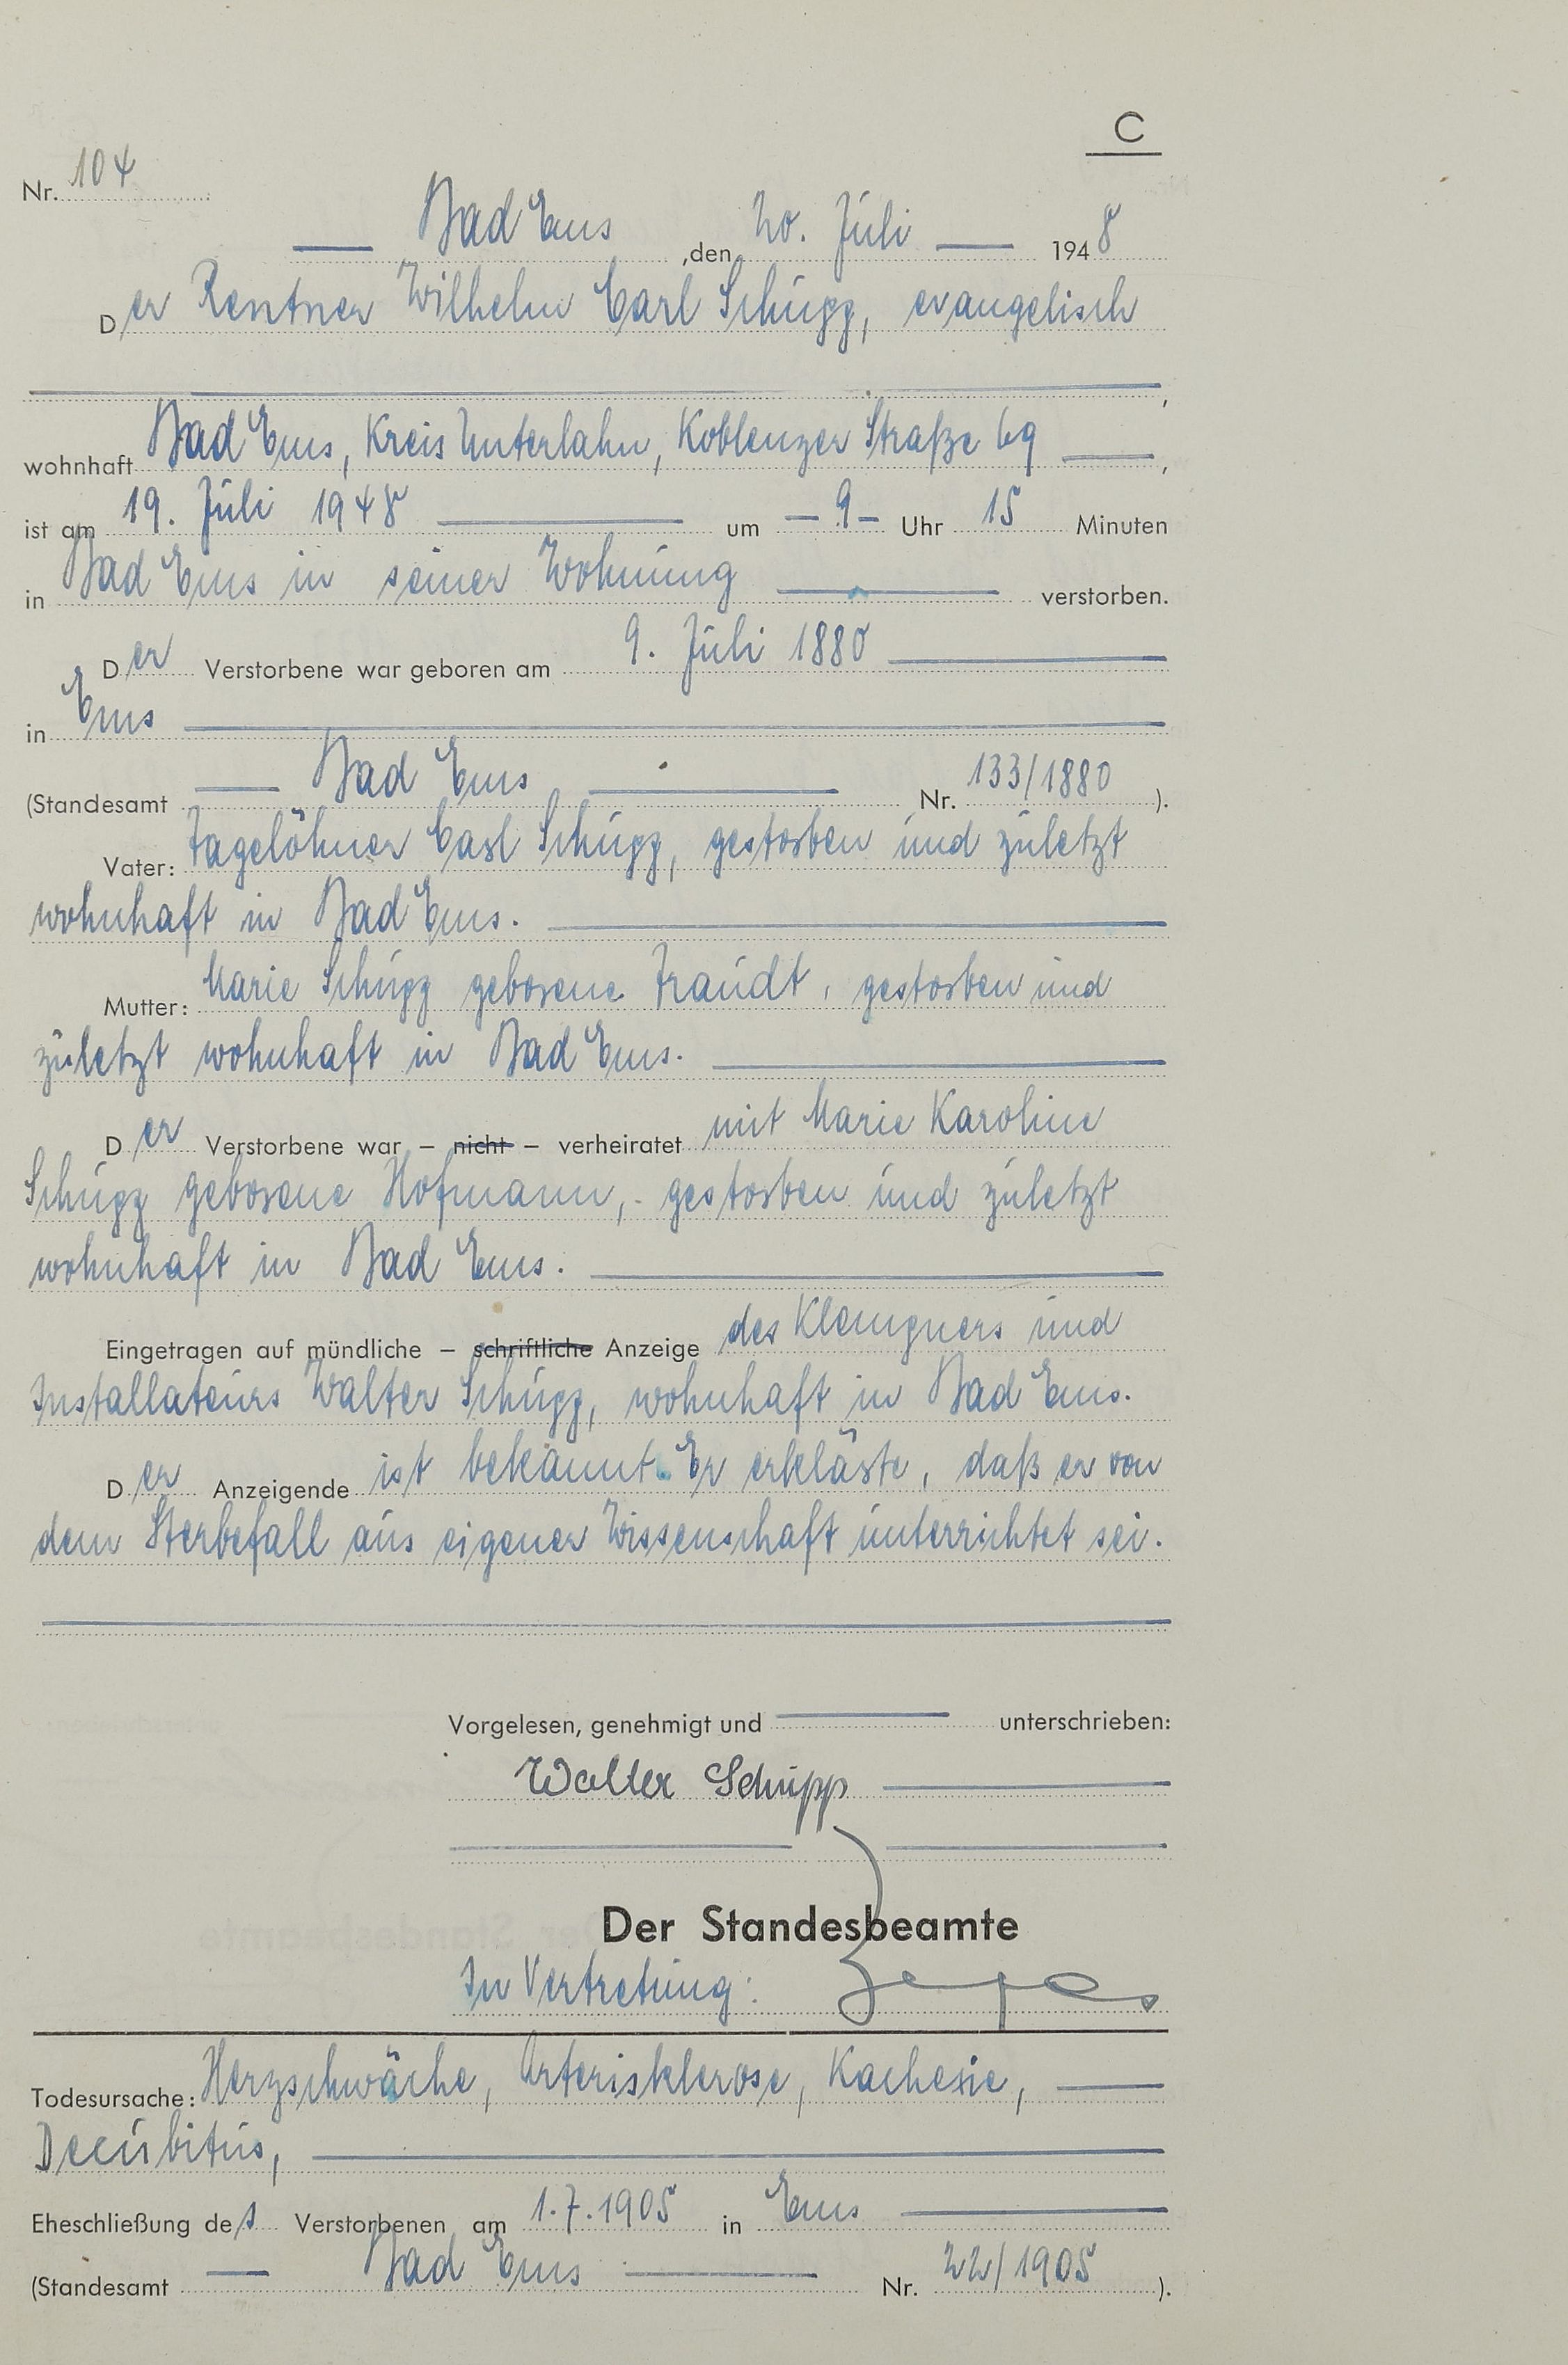 C
Nr. 104
Bad Ems, den 20. Juli 1948
Der Rentner Wilhelm Carl Schupp, evangelisch
,
wohnhaft Bad Ems, Kreis Unterlahn, Koblenzer Straße 69,
ist am 19. Juli 1948 um - 9 - Uhr 15 Minuten
in Bad Ems in seiner Wohnung verstorben.
Der Verstorbene war geboren am 9. Juli 1880
in Ems
(Standesamt Bad Ems Nr. 133/1880 ).
Vater: Tagelöhner Carl Schupp, gestorben und zuletzt
wohnhaft in Bad Ems.
Mutter: Marie Schupp geborene Traudt, gestorben und
zuletzt wohnhaft in Bad Ems.
Der Verstorbene war – nicht – verheiratet mit Marie Karoline
Schupp geborene Hofmann, gestorben und zuletzt
wohnhaft in Bad Ems.
Eingetragen auf mündliche – schriftliche Anzeige des Klempners und
Installateurs Walter Schupp, wohnhaft in Bad Ems.
Der Anzeigende ist bekannt. Er erklärte, daß er von
dem Sterbefall aus eigener Wissenschaft unterrichtet sei.
Vorgelesen, genehmigt und unterschrieben:
Walter Schupp
Der Standesbeamte
In Vertretung:
Todesursache: Herzschwäche, Arterisklerose, Kachexie,
Decubitus,
Eheschließung des Verstorbenen am 1.7.1905 in Ems
(Standesamt Bad Ems Nr. 22/1905 ).